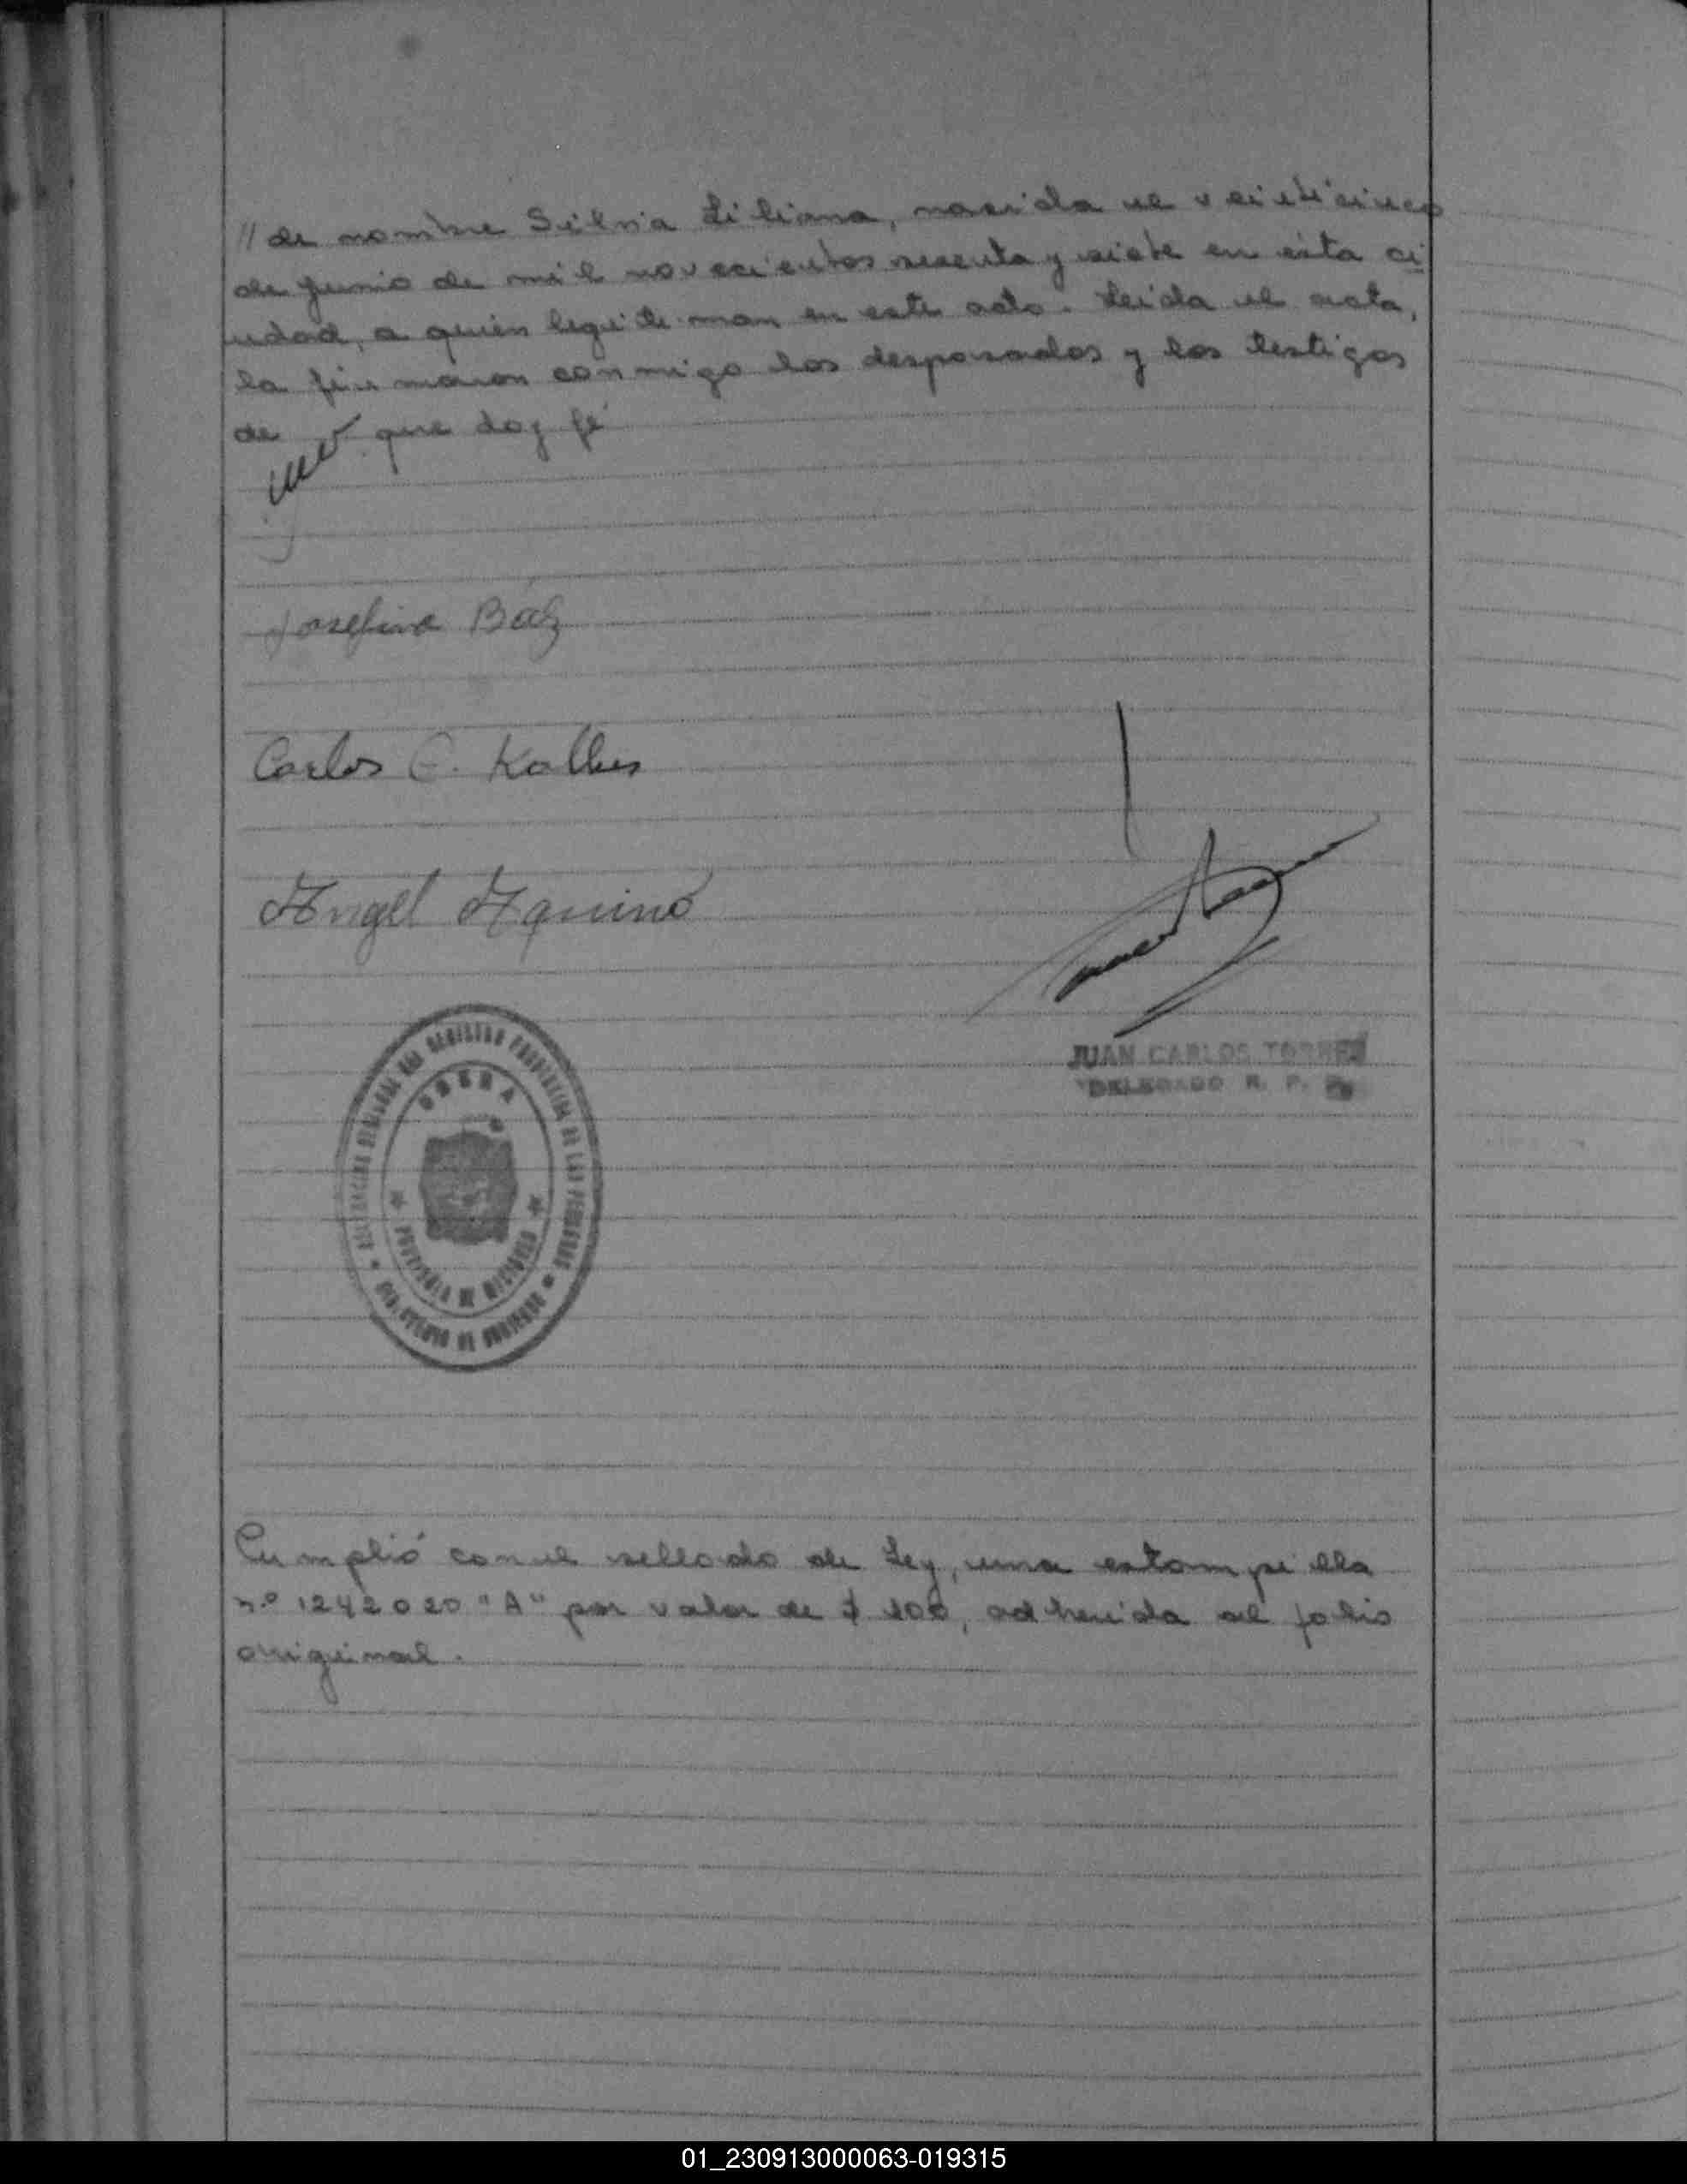 // de nombre Silvia Liliana, nacida el veinticinco
de junio de mil novecientos sesenta y siete en ésta ci
udad, a quién legitiman en este acto. Leida el acta,
la firmaron conmigo los desposados y los testigos
de que doy fé
Josefina Báez
Carlos E. Kallus
Angel Aquino
JUAN CARLOS TORRES
DELEGADO R. P. P.
REGISTRO PROVINCIAL DE LAS PERSONAS
OBERA
PROVINCIA DE MISIONES
Cumplió con el sellado de Ley, una estampilla
n.º 1242020 "A" por valor de $ 200, adherida al folio
original.
01_230913000063-019315